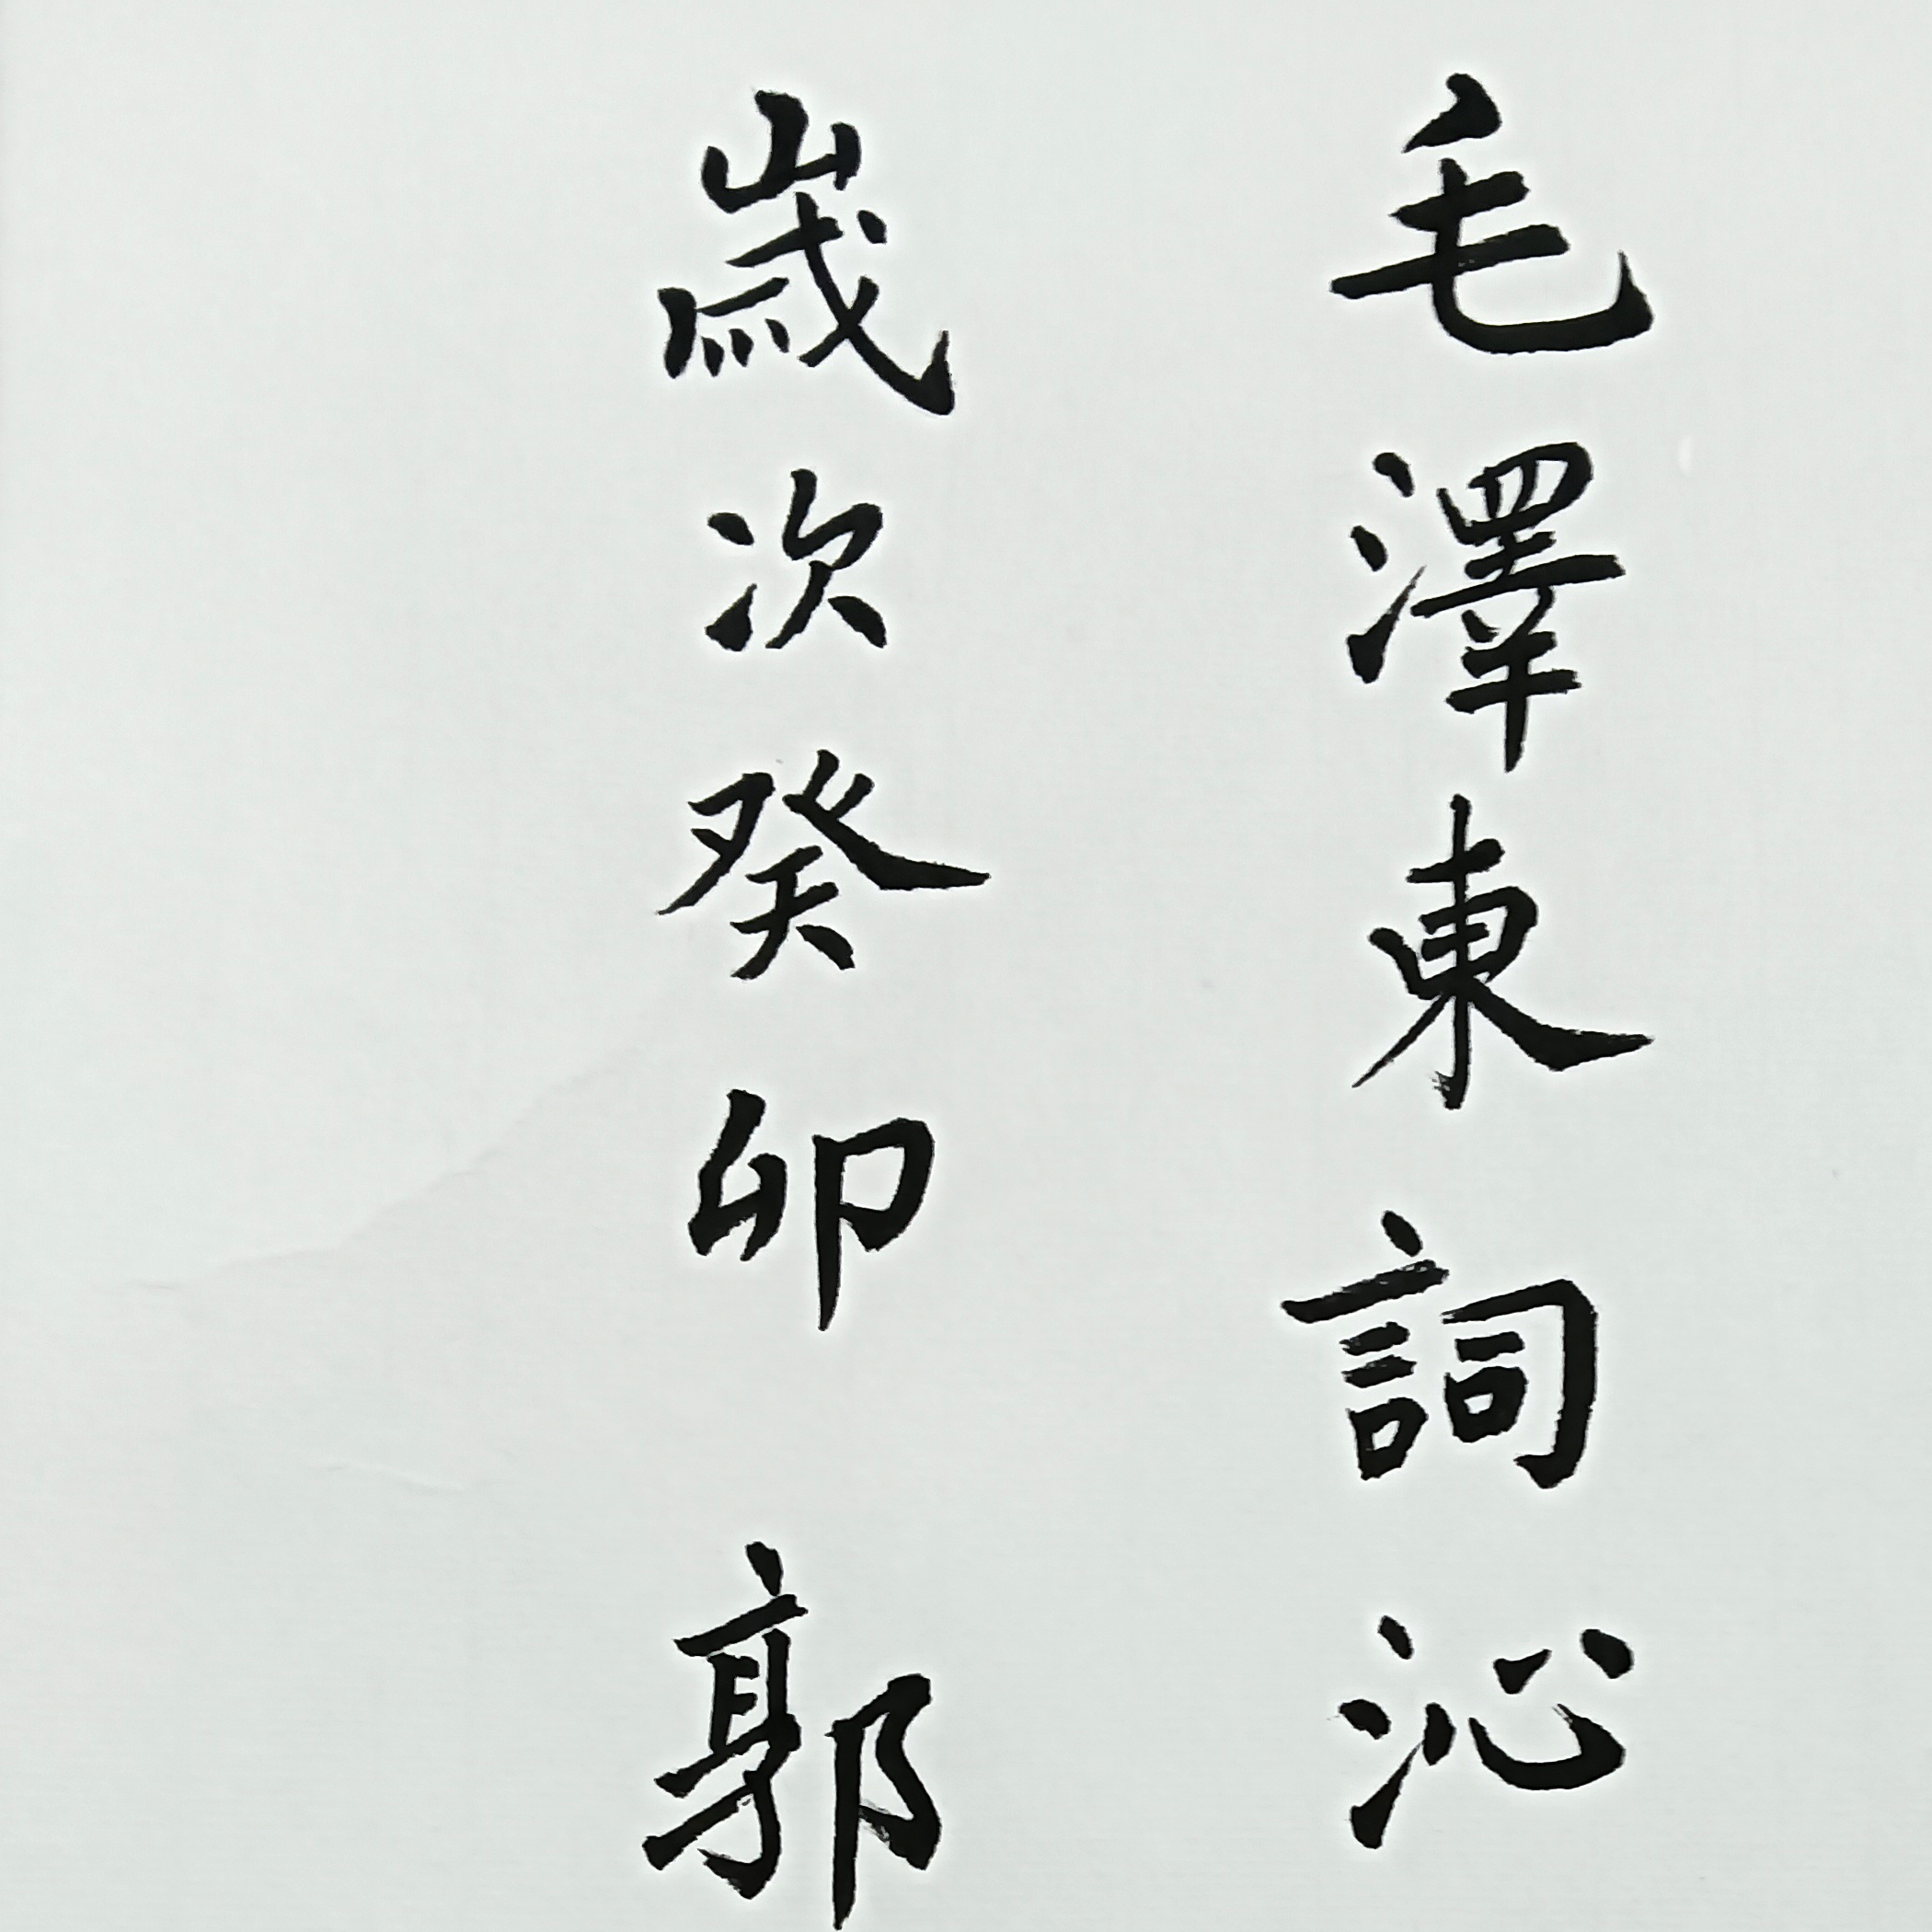 毛澤東詞沁
歲次癸卯 郭